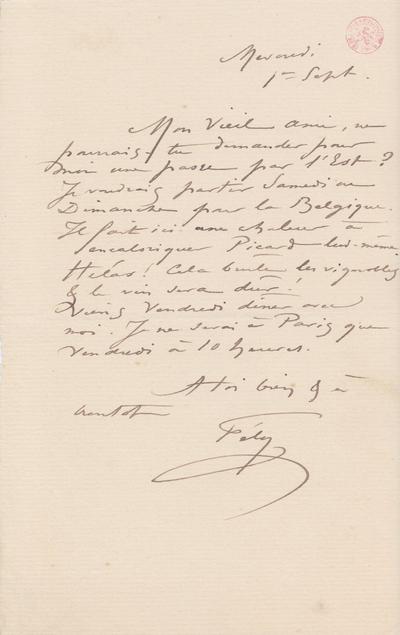 Mercredi
1er Sept.
Mon Vieil ami, ne
pourrais-tu demander pour
moi une passe par l'Est?
Je voudrais partir Samedi ou
Dimanche pour la Belgique.
Il fait ici une chaleur à
encaloriquer Picard lui-même
Hélas! Cela brûle les vignobles
& le vin sera dur!
Viens Vendredi dîner avec
moi. Je ne serai à Paris que
Vendredi à 10 heures.
A toi bien & à
bientôt
Fély